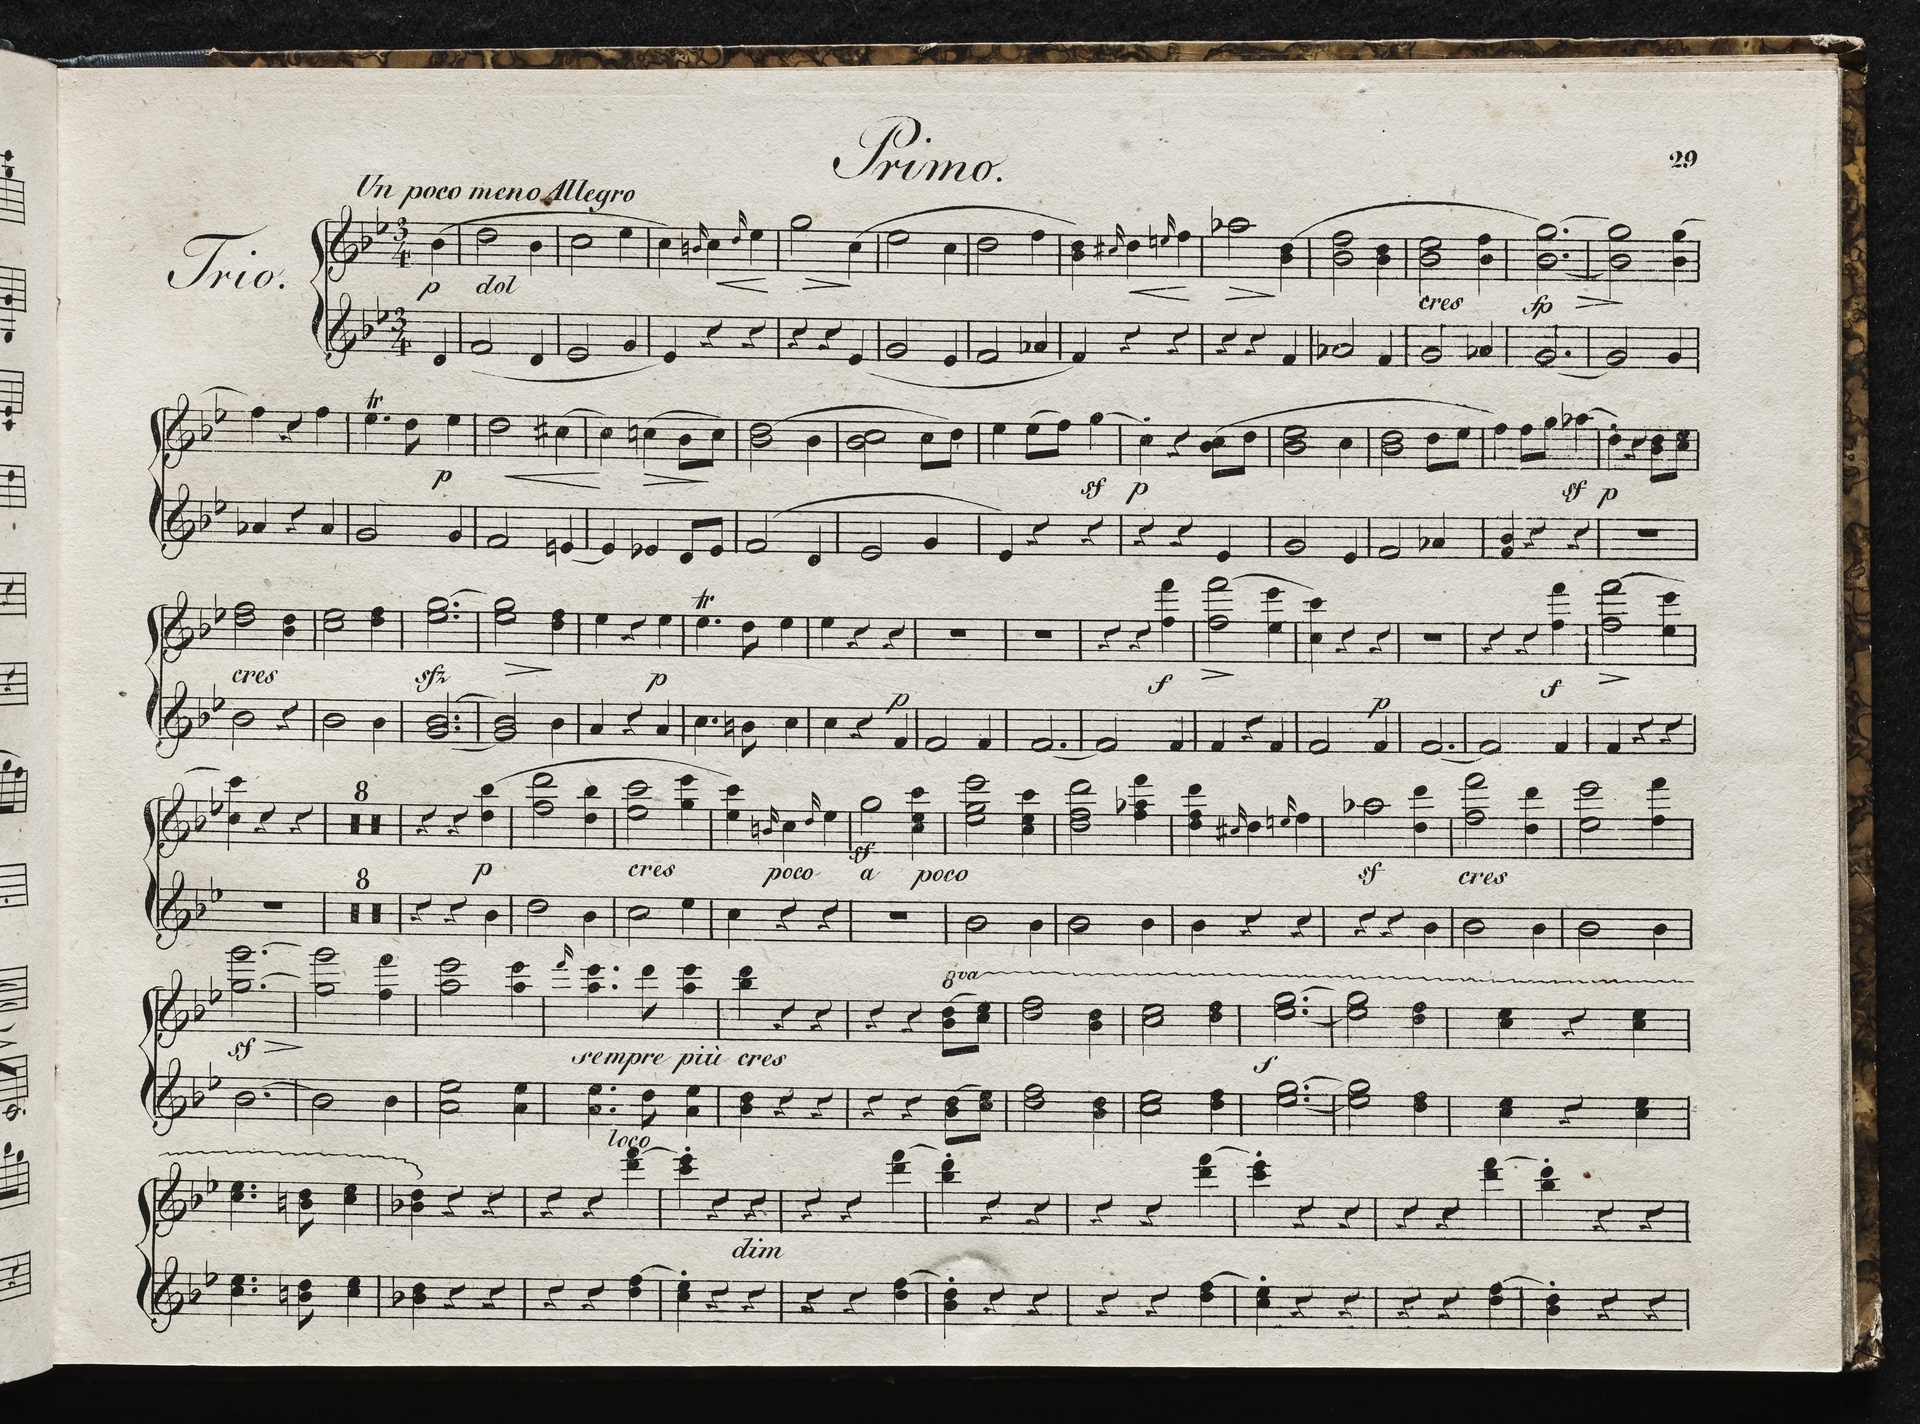 Primo.
29
Un poco meno Allegro
Trio.
p dol cres fp
tr
p sf p sf p
tr
cres sfz p f f
p p
8
p cres poco sf a poco sf cres
8
8va
sf sempre più cres f
loco
dim